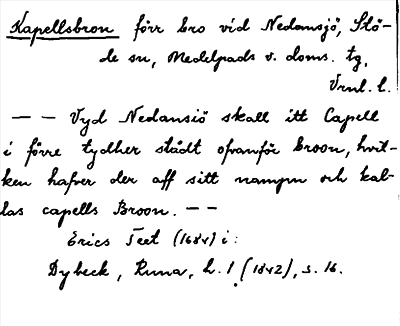 Kapellsbron förr bro vid Nedansjö, Stö-
de sn, Medelpads v. doms. tg,
Vrnl. l.
— — Vyd Nedansiö skall itt Capell
i förre tydher stådt ofvanför broon, hvil-
ken hafver der aff sitt nampn och kal-
las capells Broon. — —
Erics Teet (1684) i:
Dybeck, Runa, h. 1 (1842), s. 16.